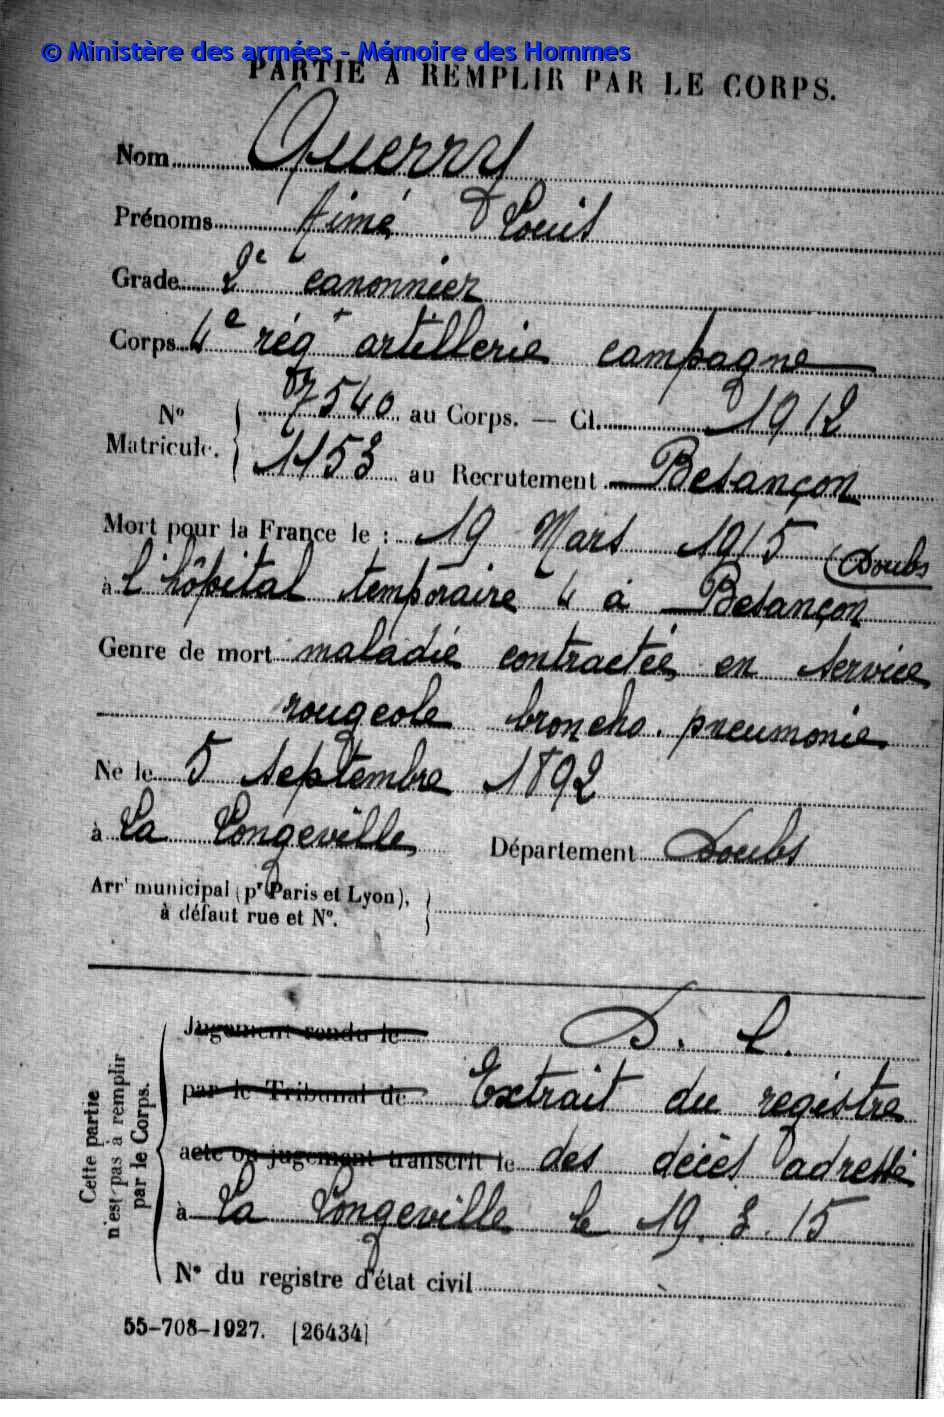 © Ministère des armées - Mémoire des Hommes
PARTIE A REMPLIR PAR LE CORPS.
Nom Querry
Prénoms Aimé Louis
Grade 2e canonnier
Corps 4e régt artillerie campagne
No Matricule. 7540 au Corps. — Cl. 1912
1153 au Recrutement Besançon
Mort pour la France le : 19 Mars 1915
à l'hôpital temporaire 4 à Besançon (Doubs
Genre de mort maladie contractée en service
rougeole broncho. pneumonie
Né le 5 septembre 1892
à La Longeville Département Doubs
Arrt municipal (pr Paris et Lyon),
à défaut rue et No.
Cette partie
n'est pas à remplir
par le Corps.
Jugement rendu le D. C.
par le Tribunal de Extrait du registre
acte ou jugement transcrit le des décès adressé
à La Longeville le 19. 3. 15
No du registre d'état civil
55-708-1927. [26434]